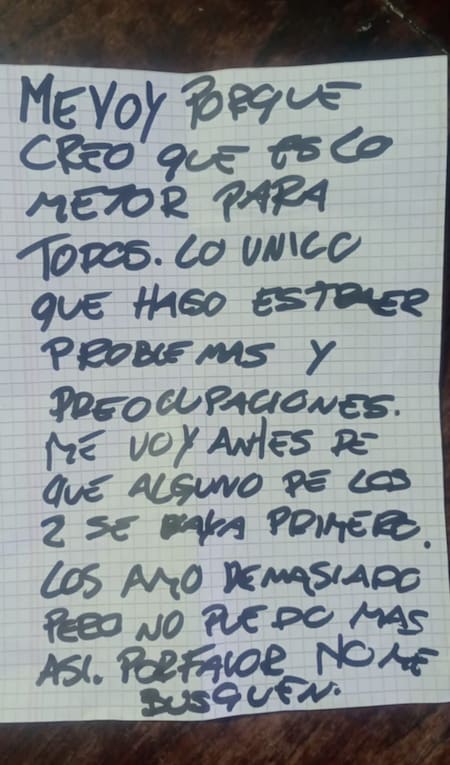 ME VOY PORQUE
CREO QUE ES LO
MEJOR PARA
TODOS. LO UNICO
QUE HAGO ES TRAER
PROBLEMAS Y
PREOCUPACIONES.
ME VOY ANTES DE
QUE ALGUNO DE LOS
2 SE VAYA PRIMERO.
LOS AMO DEMASIADO
PERO NO PUEDO MAS
ASI. POR FAVOR NO ME
BUSQUEN.